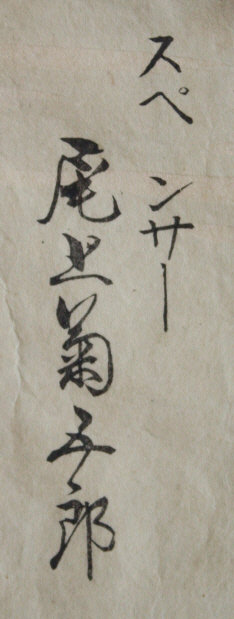 スペンサー
尾上菊五郎